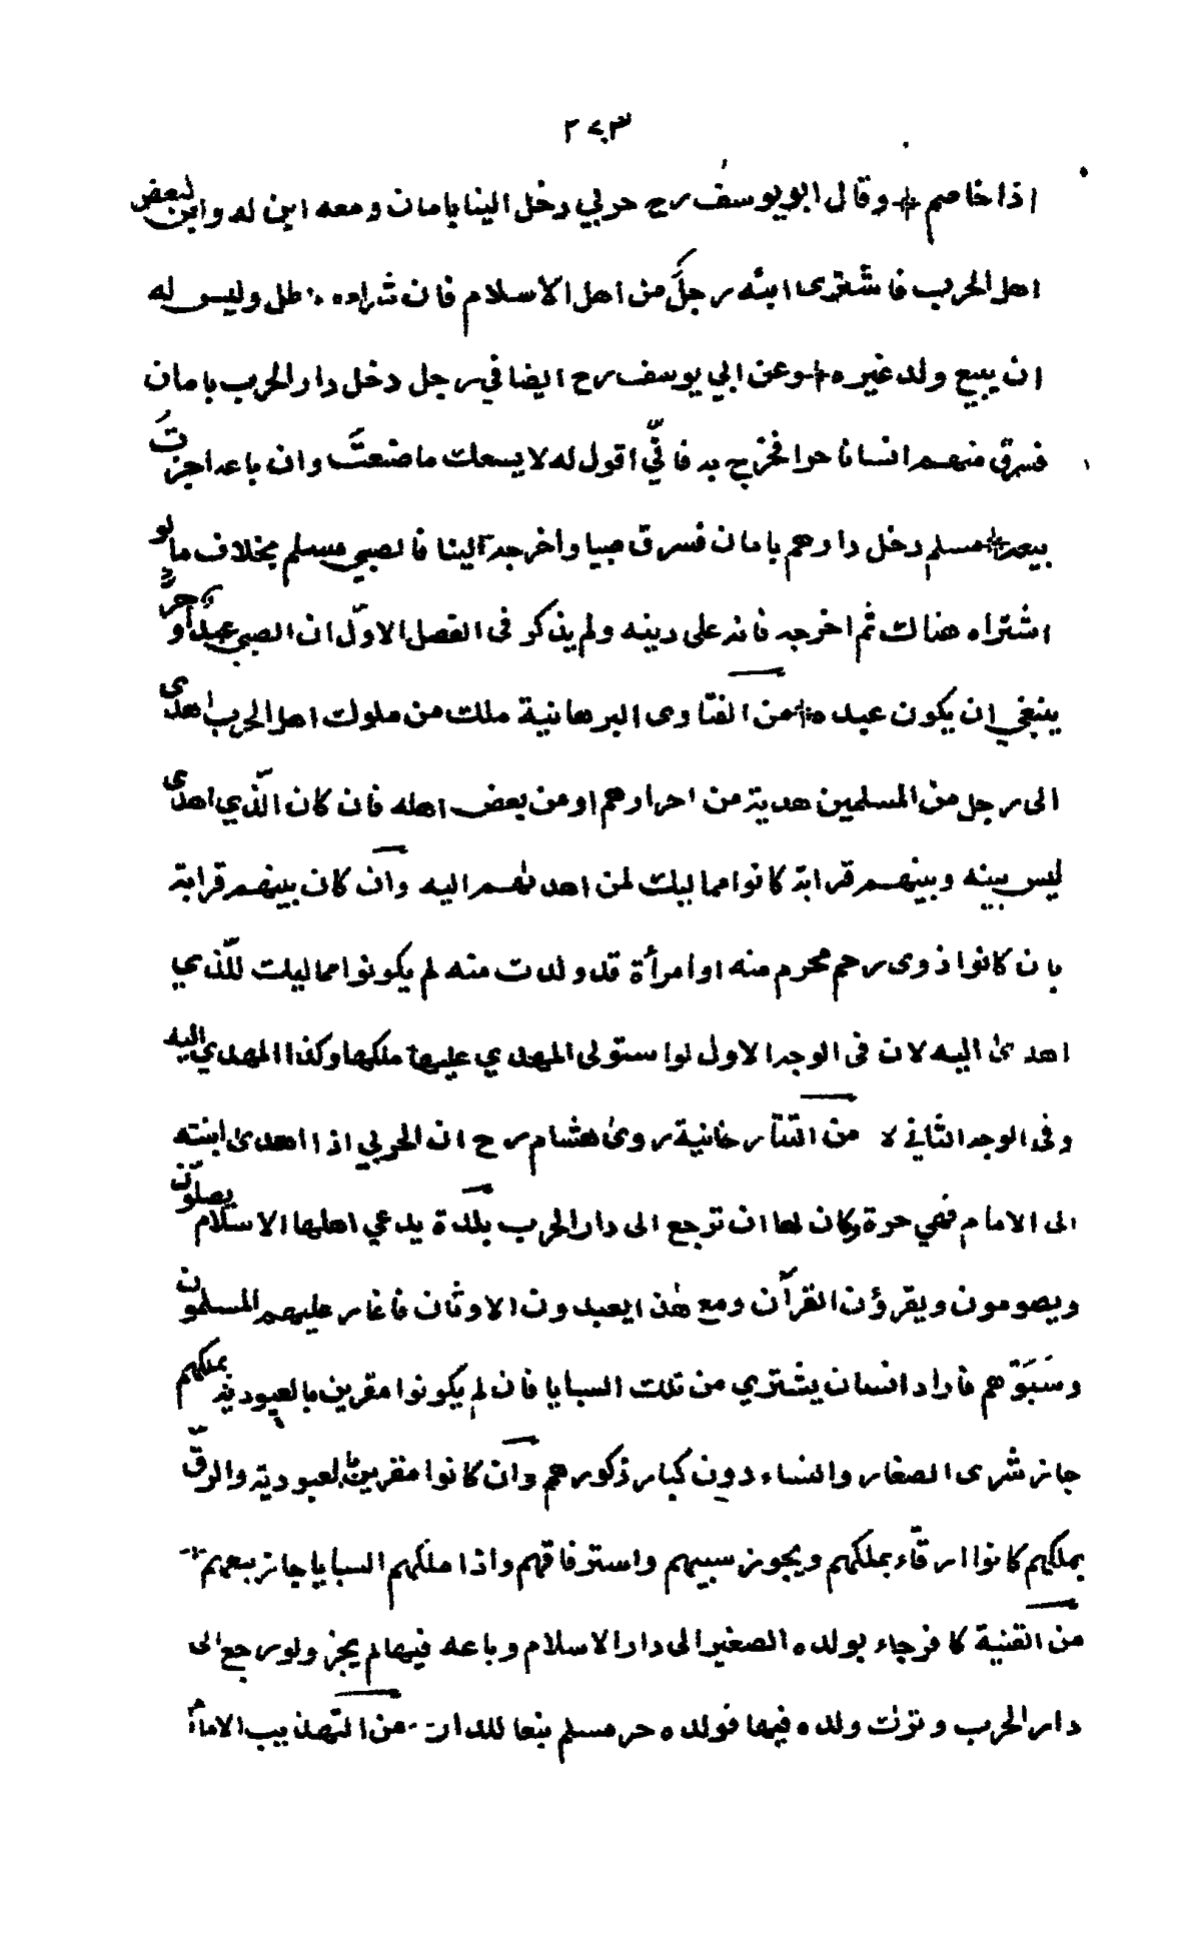 ٢٧٣
اذا خاصم وقال ابو يوسف رح حربي دخل الينا بامان ومعه ابن له وابن لبعض
اهل الحرب فاشترى ابنه رجل من اهل الاسلام فان شراءه باطل وليس له
ان يبيع ولد غيره وعن ابي يوسف رح ايضا في رجل دخل دار الحرب بامان
فسرق منهم انسانا حرا فخرج به فاني اقول له لا يسعك ما صنعت وان باعه اجزت
بيعه مسلم دخل دارهم بامان فسرق صبيا واخرجه الينا فالصبي مسلم بخلاف ما لو
اشتراه هناك ثم اخرجه فانه على دينه ولم يذكر فى الفصل الاوّل ان الصبي عبد او حرّ
ينبغي ان يكون عبده من الفتاوى البرهانية ملك من ملوك اهل الحرب اهدى
الى رجل من المسلمين هدية من احرارهم او من بعض اهله فان كان الّذي اهدى
ليس بينه وبينهم قرابة كانوا مماليك لمن اهداهم اليه وان كان بينهم قرابة
بان كانوا ذوى رحم محرم منه او امرأة قد ولدت منه لم يكونوا مماليك للّذي
اهدى اليه لان فى الوجه الاول لو استولى المهدي عليها ملكها وكذا المهدي اليه
وفى الوجه الثاني لا من التتارخانية روى هشام رح ان الحربي اذا اهدى ابنته
الى الامام فهي حرة وكان لها ان ترجع الى دار الحرب بلدة يدعي اهلها الاسلام يصلّون
ويصومون ويقرؤن القرآن ومع هذا يعبدون الاوثان فاغار عليهم المسلمون
وسَبَوْهم فاراد انسان يشتري من تلك السبايا فان لم يكونوا مقرين بالعبودية بملكهم
جاز شرى الصغار والنساء دون كبار ذكورهم وان كانوا مقرين بالعبودية والرقّ
بملكهم كانوا ارقّاء بملكهم ويجوز سبيهم واسترقاقهم واذا ملكهم السبايا جاز بيعهم
من القنية كافر جاء بولده الصغير الى دار الاسلام وباعه فيها لم يجز ولو رجع الى
دار الحرب وترك ولده فيها فولده حر مسلم تبعا للدار من التهذيب الاماأ